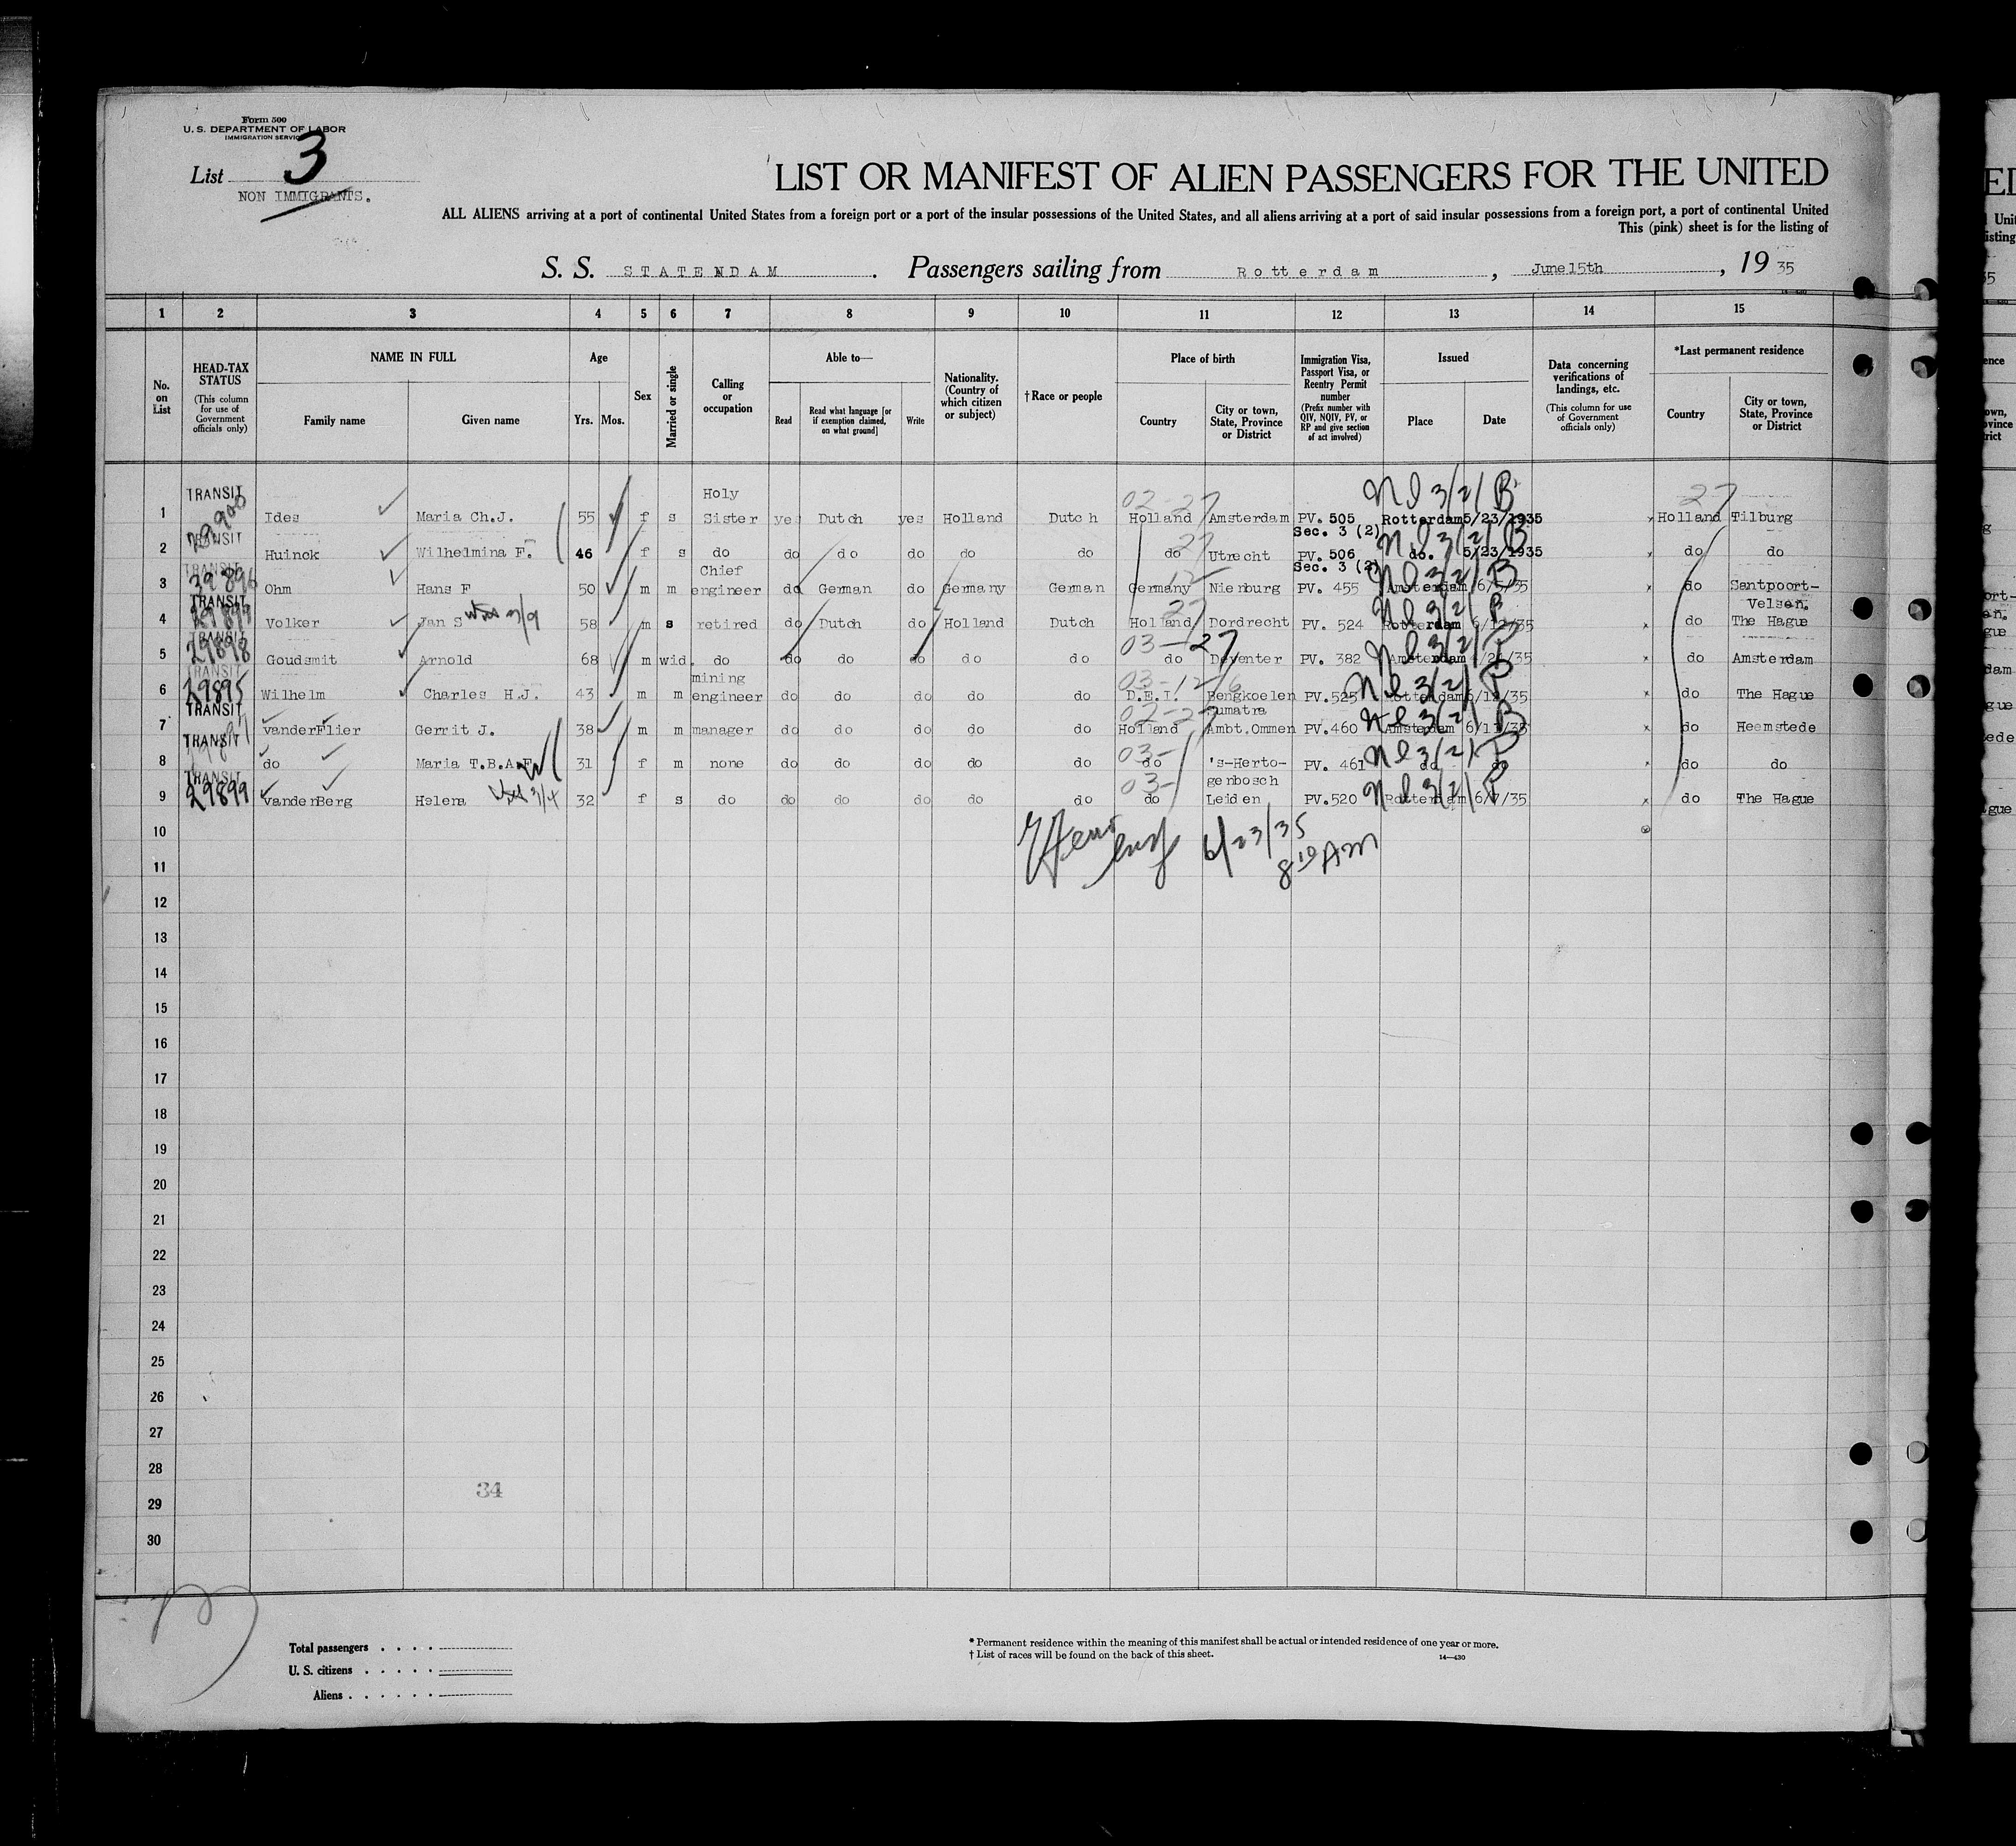 Form 500
U. S. DEPARTMENT OF LABOR
IMMIGRATION SERVICE
List 3
NON IMMIGRANTS.
LIST OR MANIFEST OF ALIEN PASSENGERS FOR THE UNITED
ALL ALIENS arriving at a port of continental United States from a foreign port or a port of the insular possessions of the United States, and all aliens arriving at a port of said insular possessions from a foreign port, a port of continental United
This (pink) sheet is for the listing of
S. S. STATENDAM . Passengers sailing from Rotterdam , June 15th , 19 35
1 2 3 4 5 6 7 8 9 10 11 12 13 14 15
No. on List
HEAD-TAX STATUS (This column for use of Government officials only)
NAME IN FULL Family name Given name
Age Yrs. Mos.
Sex
Married or single
Calling or occupation
Able to— Read Read what language [or if exemption claimed, on what ground] Write
Nationality. (Country of which citizen or subject)
†Race or people
Place of birth Country City or town, State, Province or District
Immigration Visa, Passport Visa, or Reentry Permit number (Prefix number with QIV, NQIV, PV, or RP and give section of act involved)
Issued Place Date
Data concerning verifications of landings, etc. (This column for use of Government officials only)
*Last permanent residence Country City or town, State, Province or District
1 TRANSIT Ides Maria Ch.J. 55 f s Holy Sister yes Dutch yes Holland Dutch 02-27 Holland Amsterdam PV. 505 Sec. 3 (2) Rotterdam 5/23/1935 27 Holland Tilburg
2 TRANSIT 29900 Huinck Wilhelmina F. 46 f s do do do do do do 27 do Utrecht PV. 506 Sec. 3 (2) do. 5/23/1935 do do
3 TRANSIT 39896 Ohm Hans F 50 m m Chief engineer do German do Germany German Germany Nienburg PV. 455 Amsterdam 6/5/35 do Santpoort-Velsen.
4 TRANSIT Volker Jan S 58 m s retired do Dutch do Holland Dutch 27 Holland Dordrecht PV. 524 Rotterdam 6/12/35 do The Hague
5 TRANSIT 29898 Goudsmit Arnold 68 m wid. do do do do do do 03-27 do Deventer PV. 382 Amsterdam do Amsterdam
6 TRANSIT 29895 Wilhelm Charles H.J. 43 m m mining engineer do do do do do D.E.I. Bengkoelen Sumatra PV.525 Rotterdam 6/12/35 do The Hague
7 TRANSIT vanderFlier Gerrit J. 38 m m manager do do do do do 02-27 Holland Ambt.Ommen PV.460 Amsterdam 6/11/35 do Heemstede
8 TRANSIT do Maria T.B.A.F. 31 f m none do do do do do 03- do 's-Hertogenbosch PV. 461 do do do do
9 TRANSIT 29899 vanderBerg Helena 32 f s do do do do do do 03- do Leiden PV.520 Rotterdam 6/7/35 do The Hague
10
6/23/35
11
8 10 AM
12
13
14
15
16
17
18
19
20
21
22
23
24
25
26
27
28
34
29
30
Total passengers
U. S. citizens
Aliens
* Permanent residence within the meaning of this manifest shall be actual or intended residence of one year or more.
† List of races will be found on the back of this sheet.
14—430